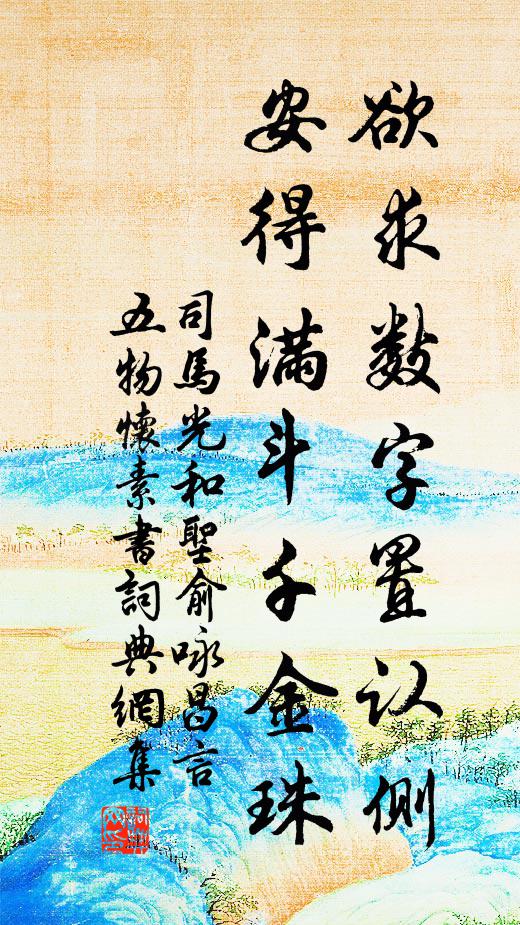 欲求数字置认侧
安得满斗千金珠
司馬光和聖俞咏昌言
五物懷素書詞典網集